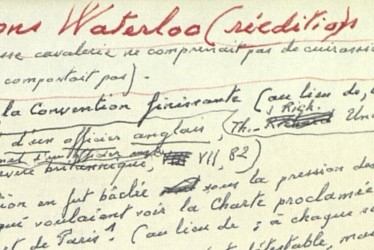 ons Waterloo (réédition
sse cavalerie ne comprenait pas de cuirassie
comportait pas).
la Convention finissante (au lieu de,
d'un officier anglais, (Th. Rich.
vue britannique, VII, 82)
tion en fut bâclée sous la pression des
qui voulaient voir la Charte proclamée
et de Paris" (au lieu de : à chaque s
détestable, mais